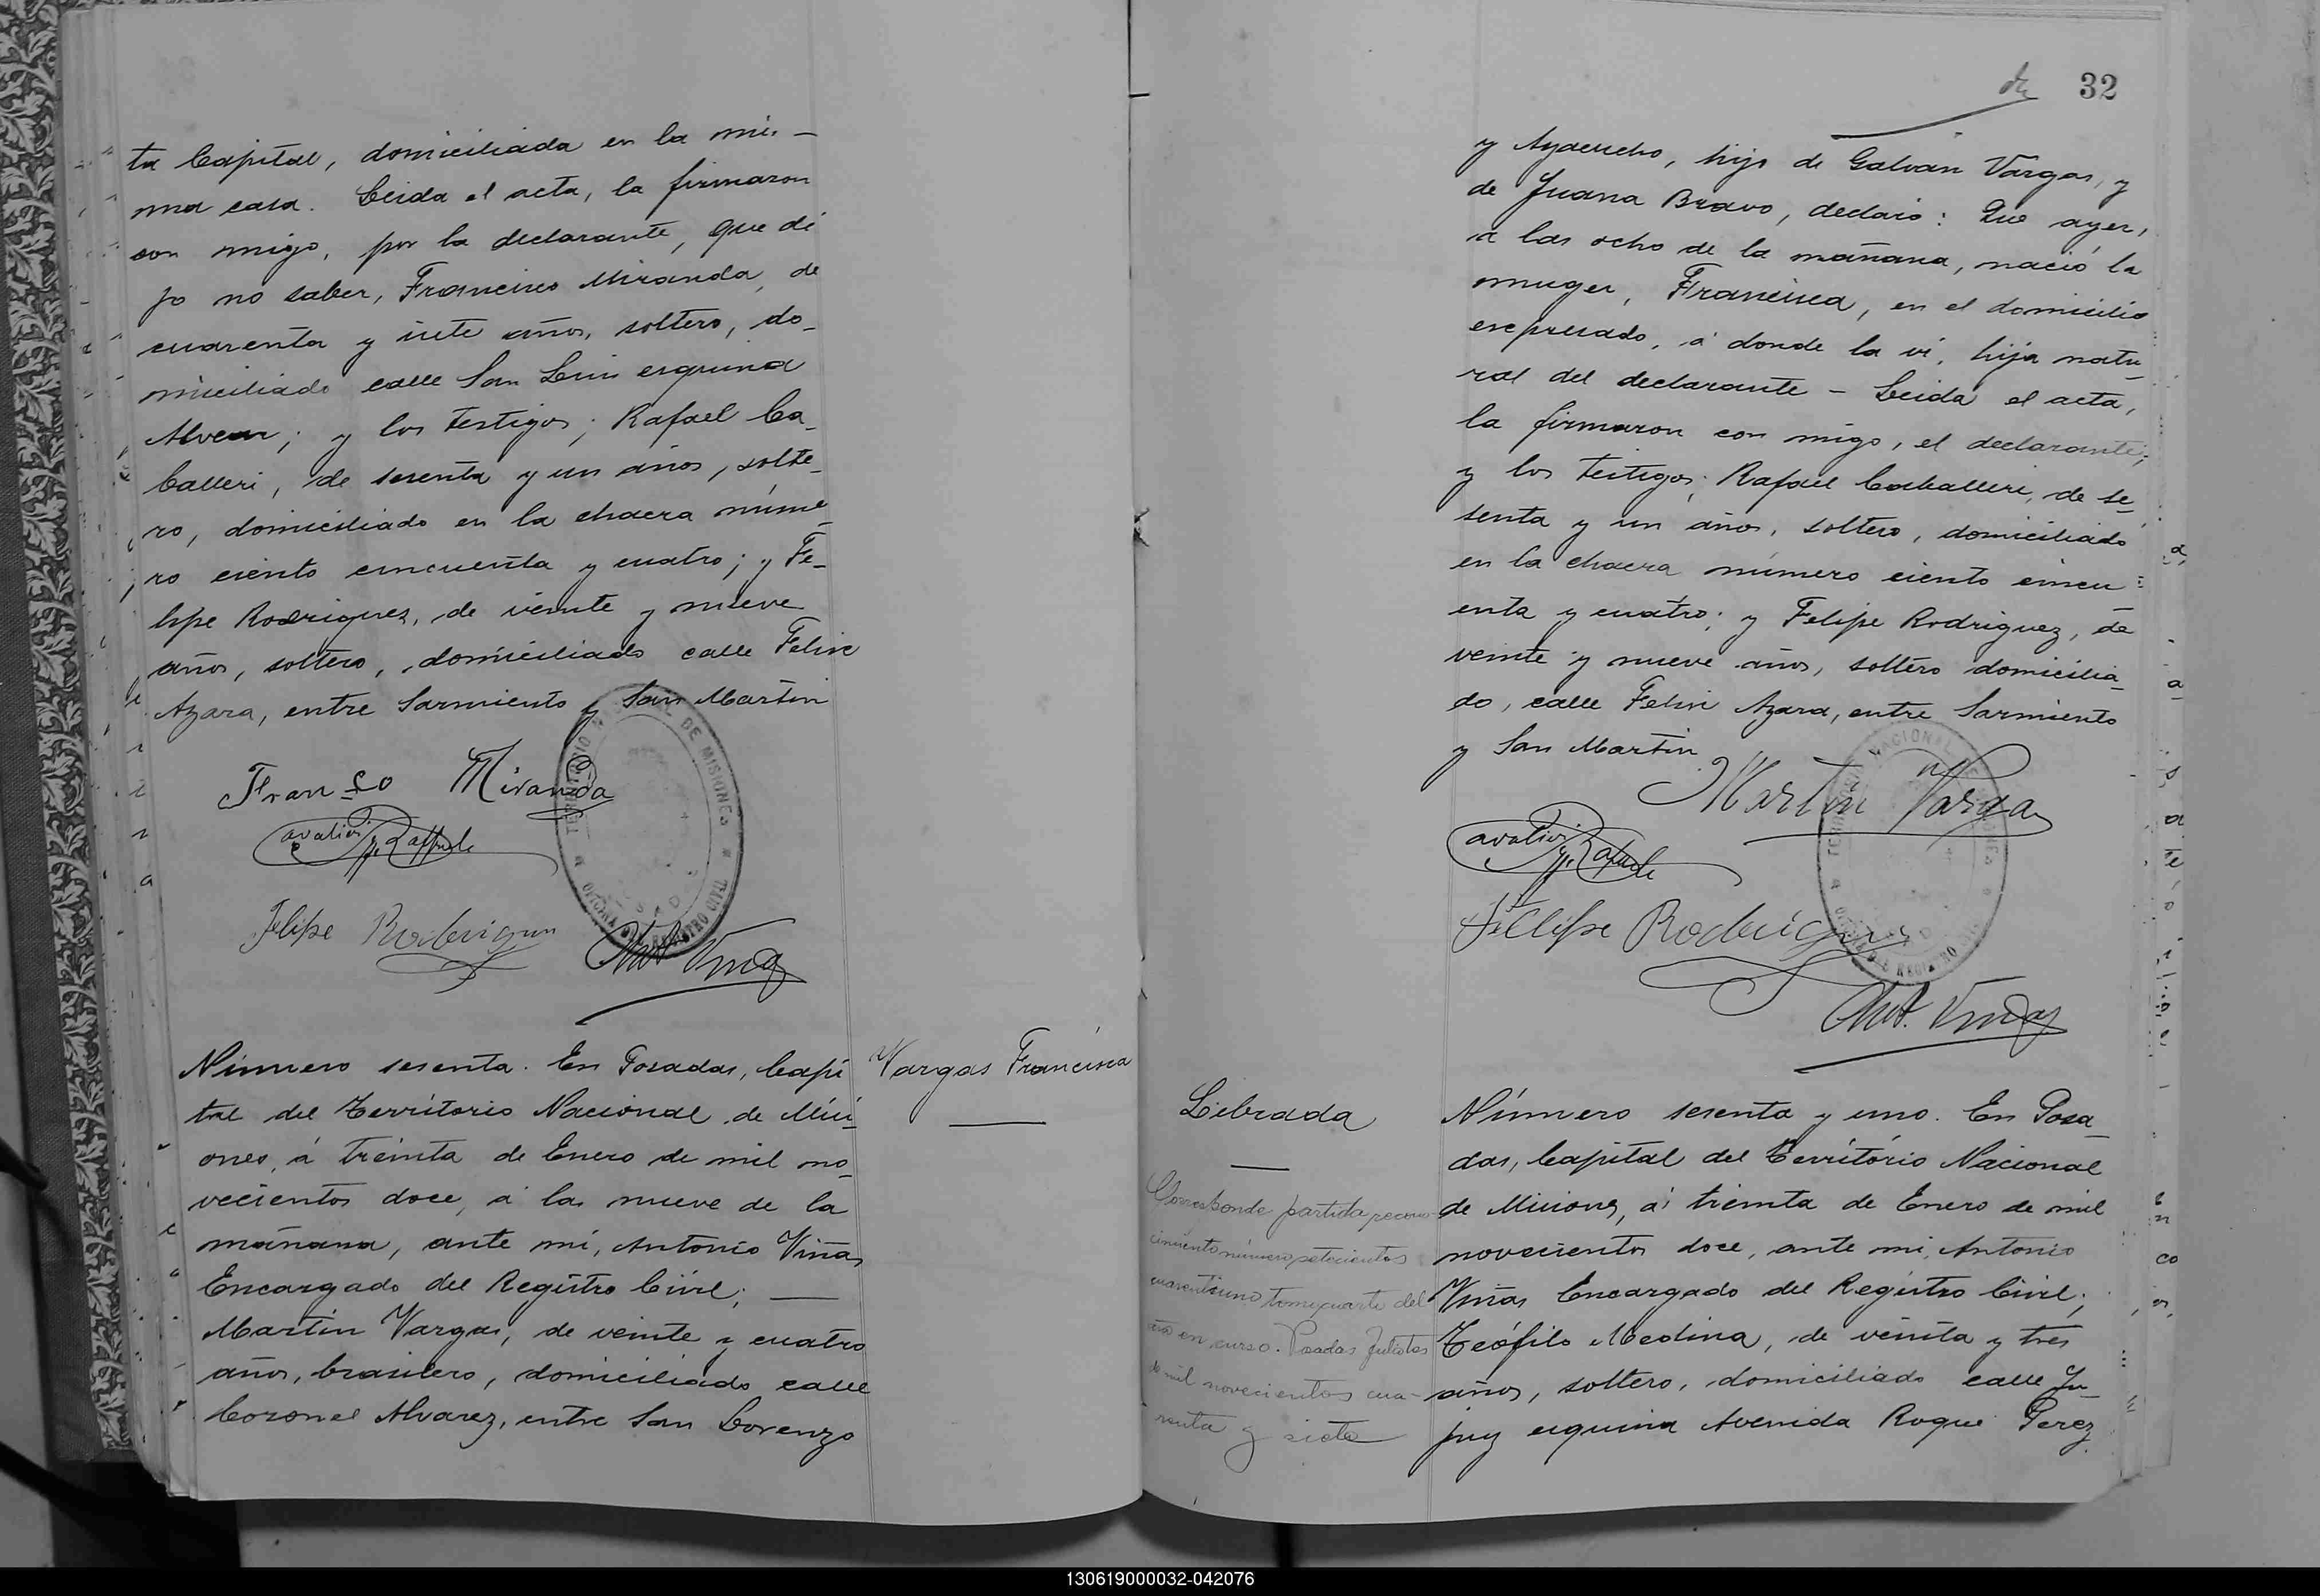 ta Capital, domiciliada en la mis-
ma casa. Leida el acta, la firmaron
con migo, por la declarante, que di
jo no saber, Francisco Miranda, de
cuarenta y siete años, soltero, do-
miciliado calle San Luis esquina
Alvear; y los testigos; Rafael Ca-
balleri, de sesenta y un años, solte-
ro, domiciliado en la chacra núme-
ro ciento cincuenta y cuatro; y Fe-
lipe Rodriguez, de veinte y nueve
años, soltero, domiciliado calle Felix
Azara, entre Sarmiento y San Martin
Franco Miranda
Felipe Rodriguez
TERRITORIO NACIONAL DE MISIONES
OFICINA DEL REGISTRO CIVIL
Ant Viñas
Número sesenta. En Posadas, Capi
tal del Territorio Nacional de Misi-
ones, á treinta de Enero de mil no-
vecientos doce, á las nueve de la
mañana, ante mí, Antonio Viñas
Encargado del Registro Civil;
Martin Vargas, de veinte y cuatro
años, brasilero, domiciliado calle
Coronel Alvarez, entre San Lorenzo
Vargas Francisca
32
y Ayacucho, hijo de Galván Vargas, y
de Juana Bravo, declaró: Que ayer,
á las ocho de la mañana, nació la
muger, Francisca, en el domicilio
expresado, á donde la vi, hija natu-
ral del declarante - Leida el acta,
la firmaron con migo, el declarante;
y los testigos; Rafael Caballeri, de se-
senta y un años, soltero, domiciliado
en la chacra número ciento cincu-
enta y cuatro; y Felipe Rodriguez, de
veinte y nueve años, soltero domicilia-
do, calle Felix Azara, entre Sarmiento
y San Martin
Martin Vargas
Fellipe Rodriguez
TERRITORIO NACIONAL DE MISIONES
OFICINA DEL REGISTRO CIVIL
Ant. Viñas
Librada
Corresponde partida recono-
cimiento número setecientos
cuarentiuno tomo cuarto del
año en curso. Posadas Julio
de mil novecientos cua-
renta y siete
Número sesenta y uno. En Posa-
das, Capital del Territorio Nacional
de Misiones, á treinta de Enero de mil
novecientos doce, ante mi, Antonio
Viñas Encargado del Registro Civil;
Teófilo Medina, de veinta y tres
años, soltero, domiciliado calle Ju-
juy esquina Avenida Roque Perez
130619000032-042076